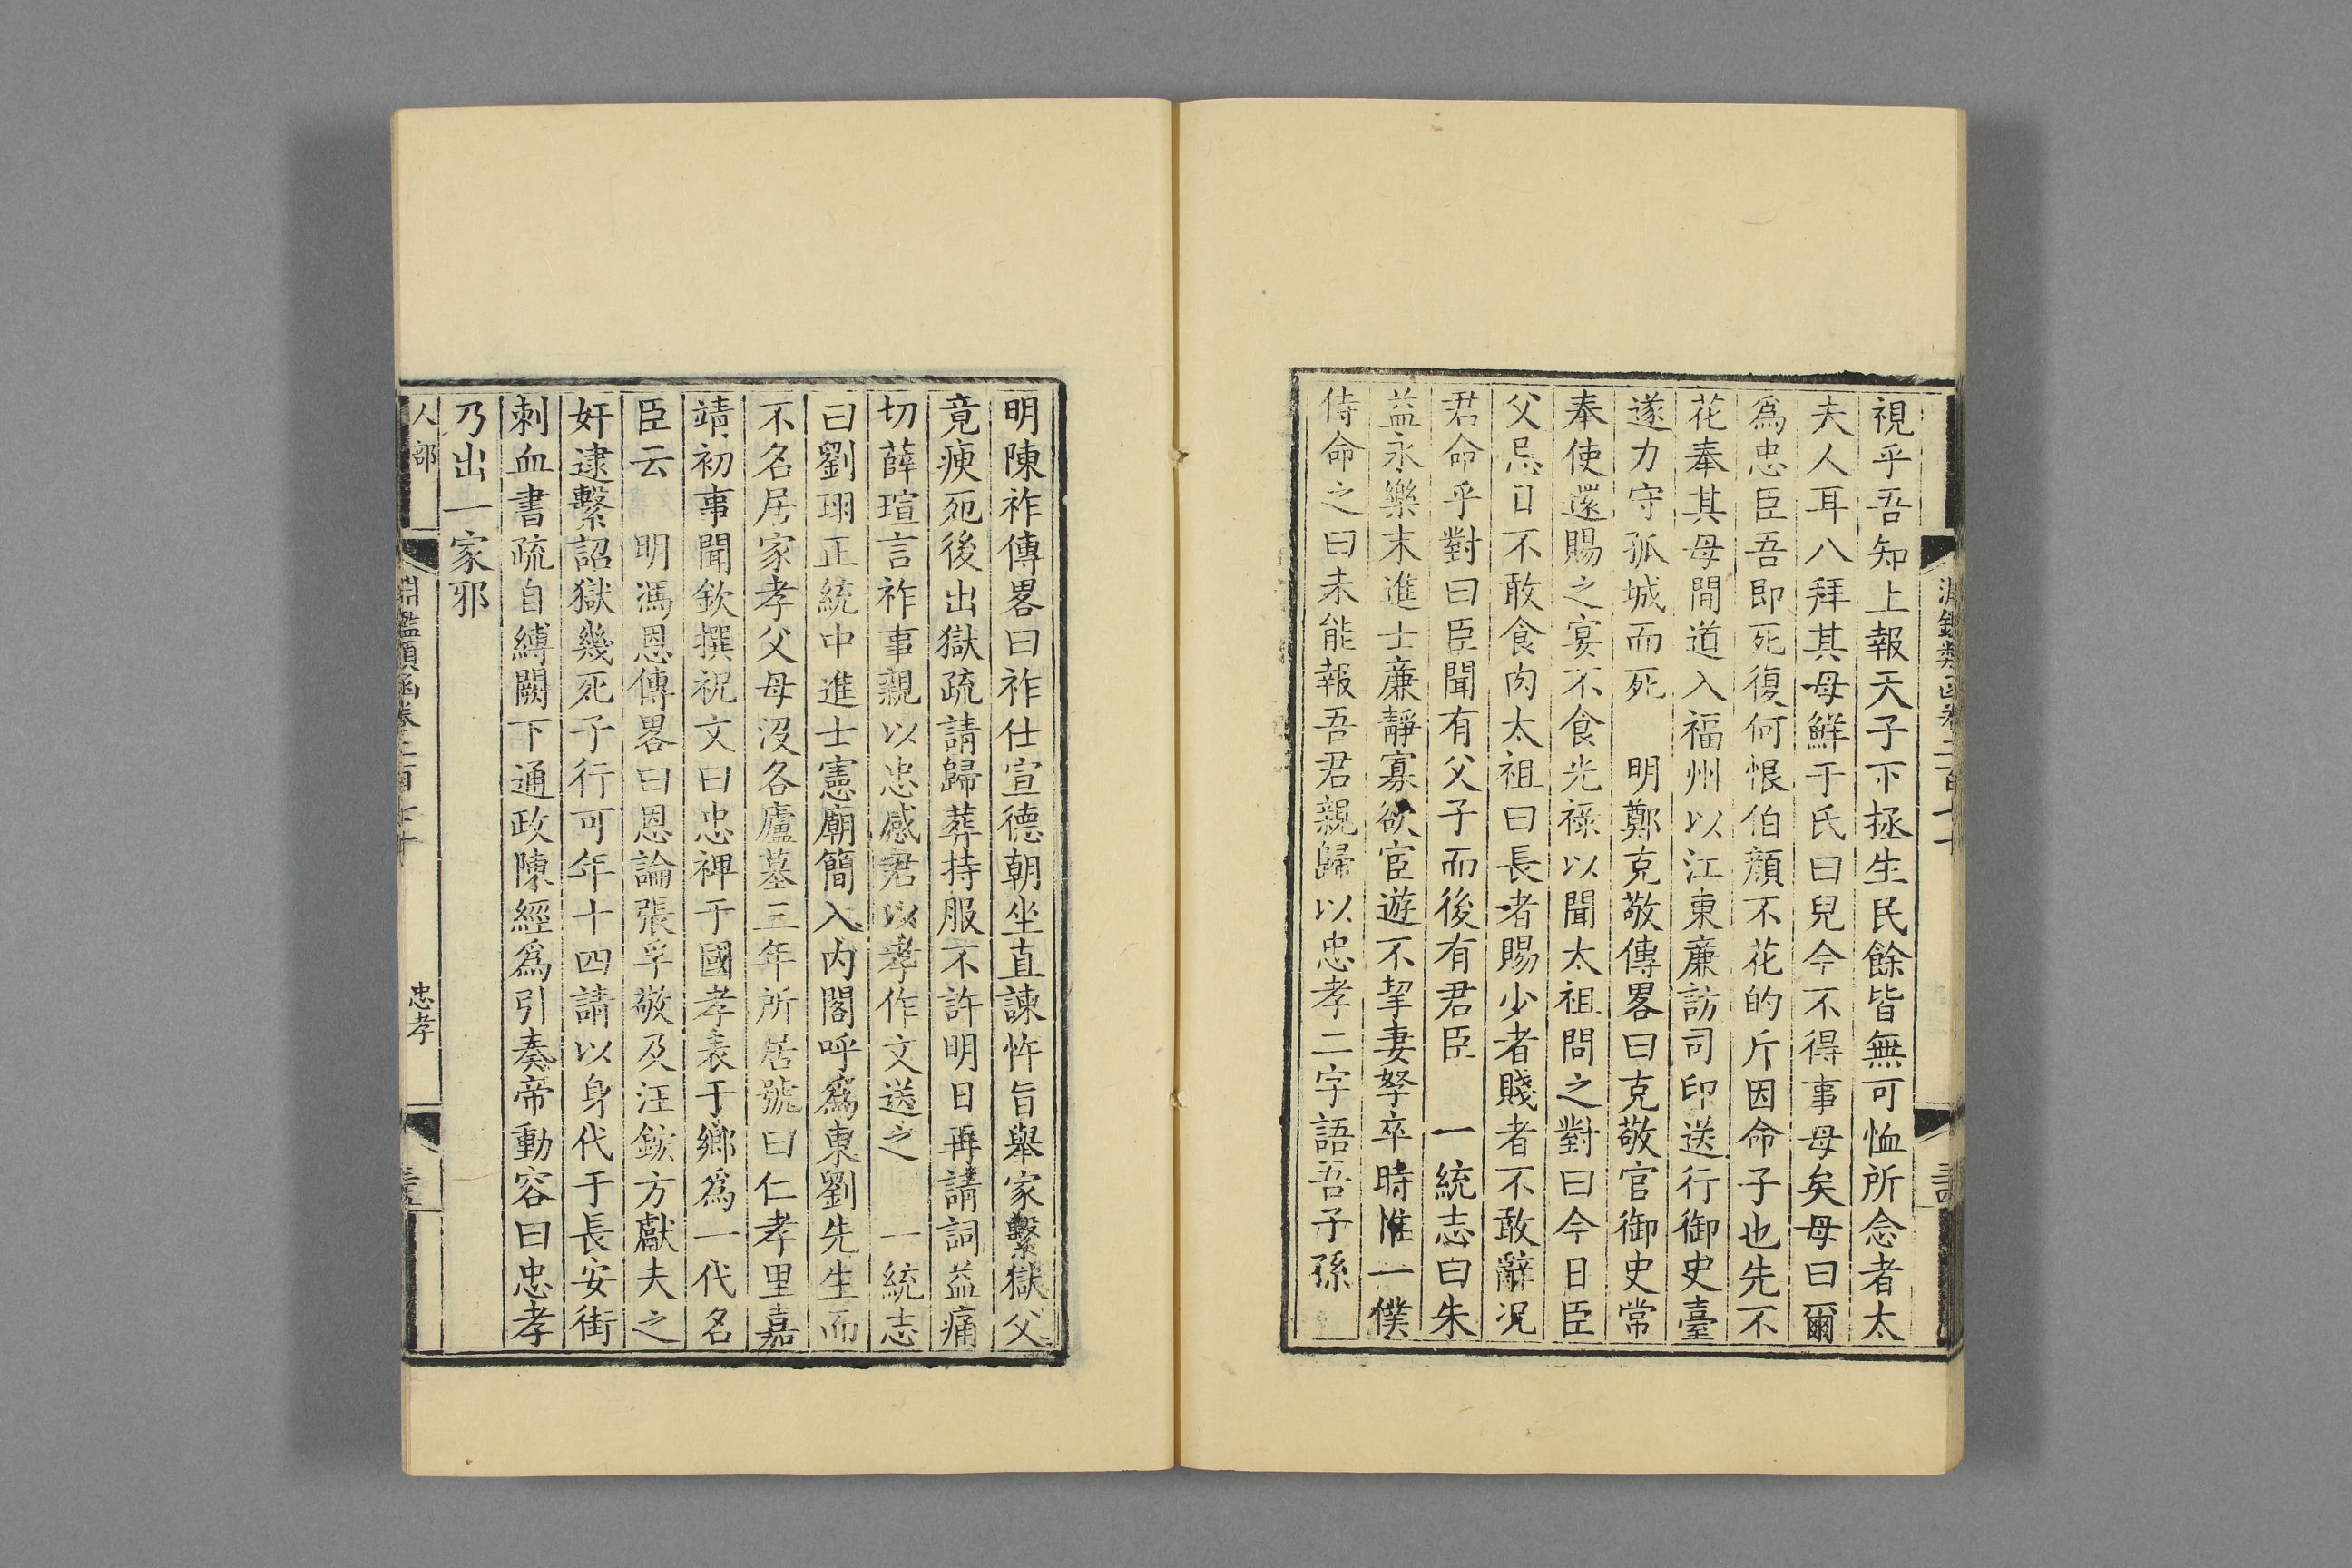 視乎吾知上報天子下拯生民餘皆無可恤所念者太
夫人耳八拜其母鮮于氏曰兒今不得事母矣母曰爾
爲忠臣吾即死復何恨伯顏不花的斤因命子也先不
花奉其母間道入福州以江東廉訪司印送行御史臺
遂力守孤城而死　明鄭克敬傳畧曰克敬官御史常
奉使還賜之宴不食光祿以聞太祖問之對曰今日臣
父忌日不敢食肉太祖曰長者賜少者賤者不敢辭况
君命乎對曰臣聞有父子而後有君臣　一統志曰朱
益永樂末進士廉靜寡欲宦遊不挈妻孥卒時惟一僕
侍命之曰未能報吾君親歸以忠孝二字語吾子孫
明陳祚傳畧曰祚仕宣德朝坐直諫忤旨舉家繫獄父
竟瘐死後出獄疏請歸葬持服不許明日再請詞益痛
切薛瑄言祚事親以忠感君以孝作文送之　一統志
曰劉珝正統中進士憲廟簡入内閣呼爲東劉先生而
不名居家孝父母沒各廬墓三年所居號曰仁孝里嘉
靖初事聞欽撰祝文曰忠裨于國孝表于鄉爲一代名
臣云　明馮恩傳畧曰恩論張孚敬及汪鋐方獻夫之
奸逮繫詔獄幾死子行可年十四請以身代于長安街
刺血書疏自縛闕下通政陳經爲引奏帝動容曰忠孝
乃出一家邪
人部
淵鑑類函卷二百七十
忠孝